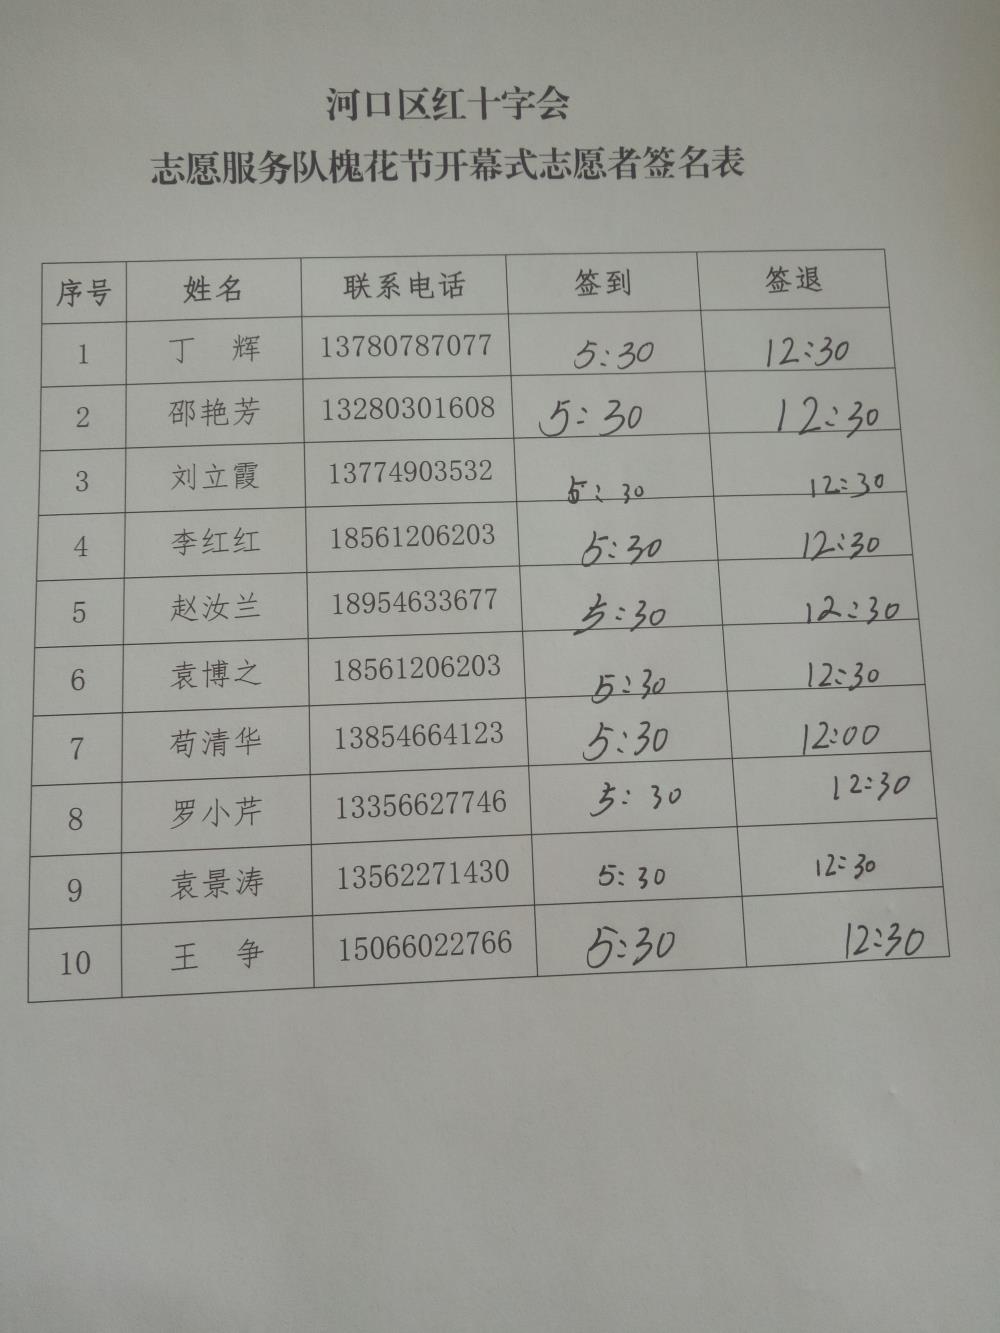 河口区红十字会
志愿服务队槐花节开幕式志愿者签名表
序号 姓名 联系电话 签到 签退
1 丁 辉 13780787077 5:30 12:30
2 邵艳芳 13280301608 5:30 12:30
3 刘立霞 13774903532 5:30 12:30
4 李红红 18561206203 5:30 12:30
5 赵汝兰 18954633677 5:30 12:30
6 袁博之 18561206203 5:30 12:30
7 苟清华 13854664123 5:30 12:00
8 罗小芹 13356627746 5:30 12:30
9 袁景涛 13562271430 5:30 12:30
10 王 争 15066022766 5:30 12:30